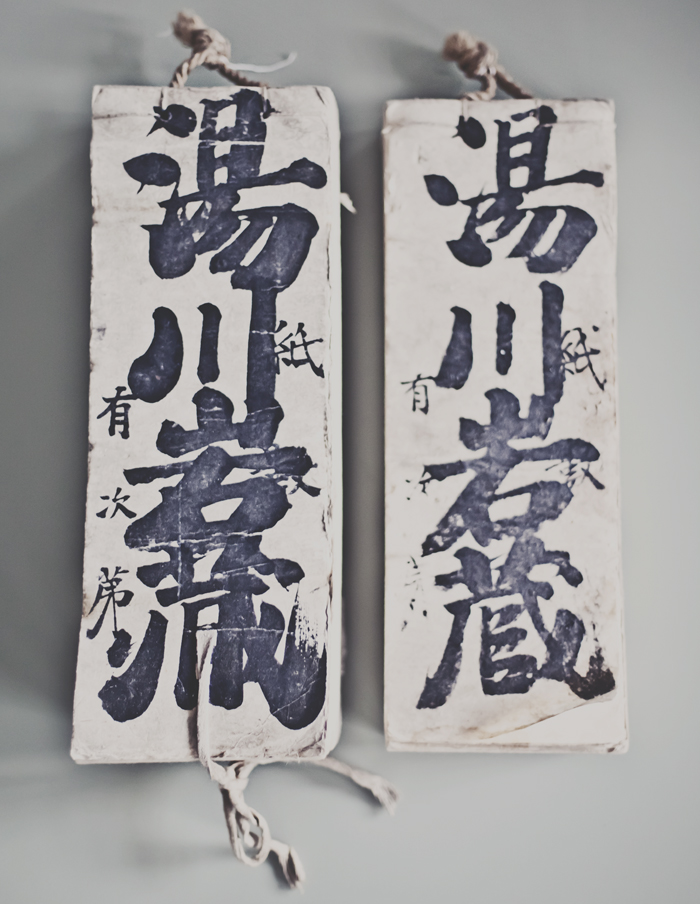 紙数
湯川岩蔵
有次第
紙数
湯川岩蔵
有次